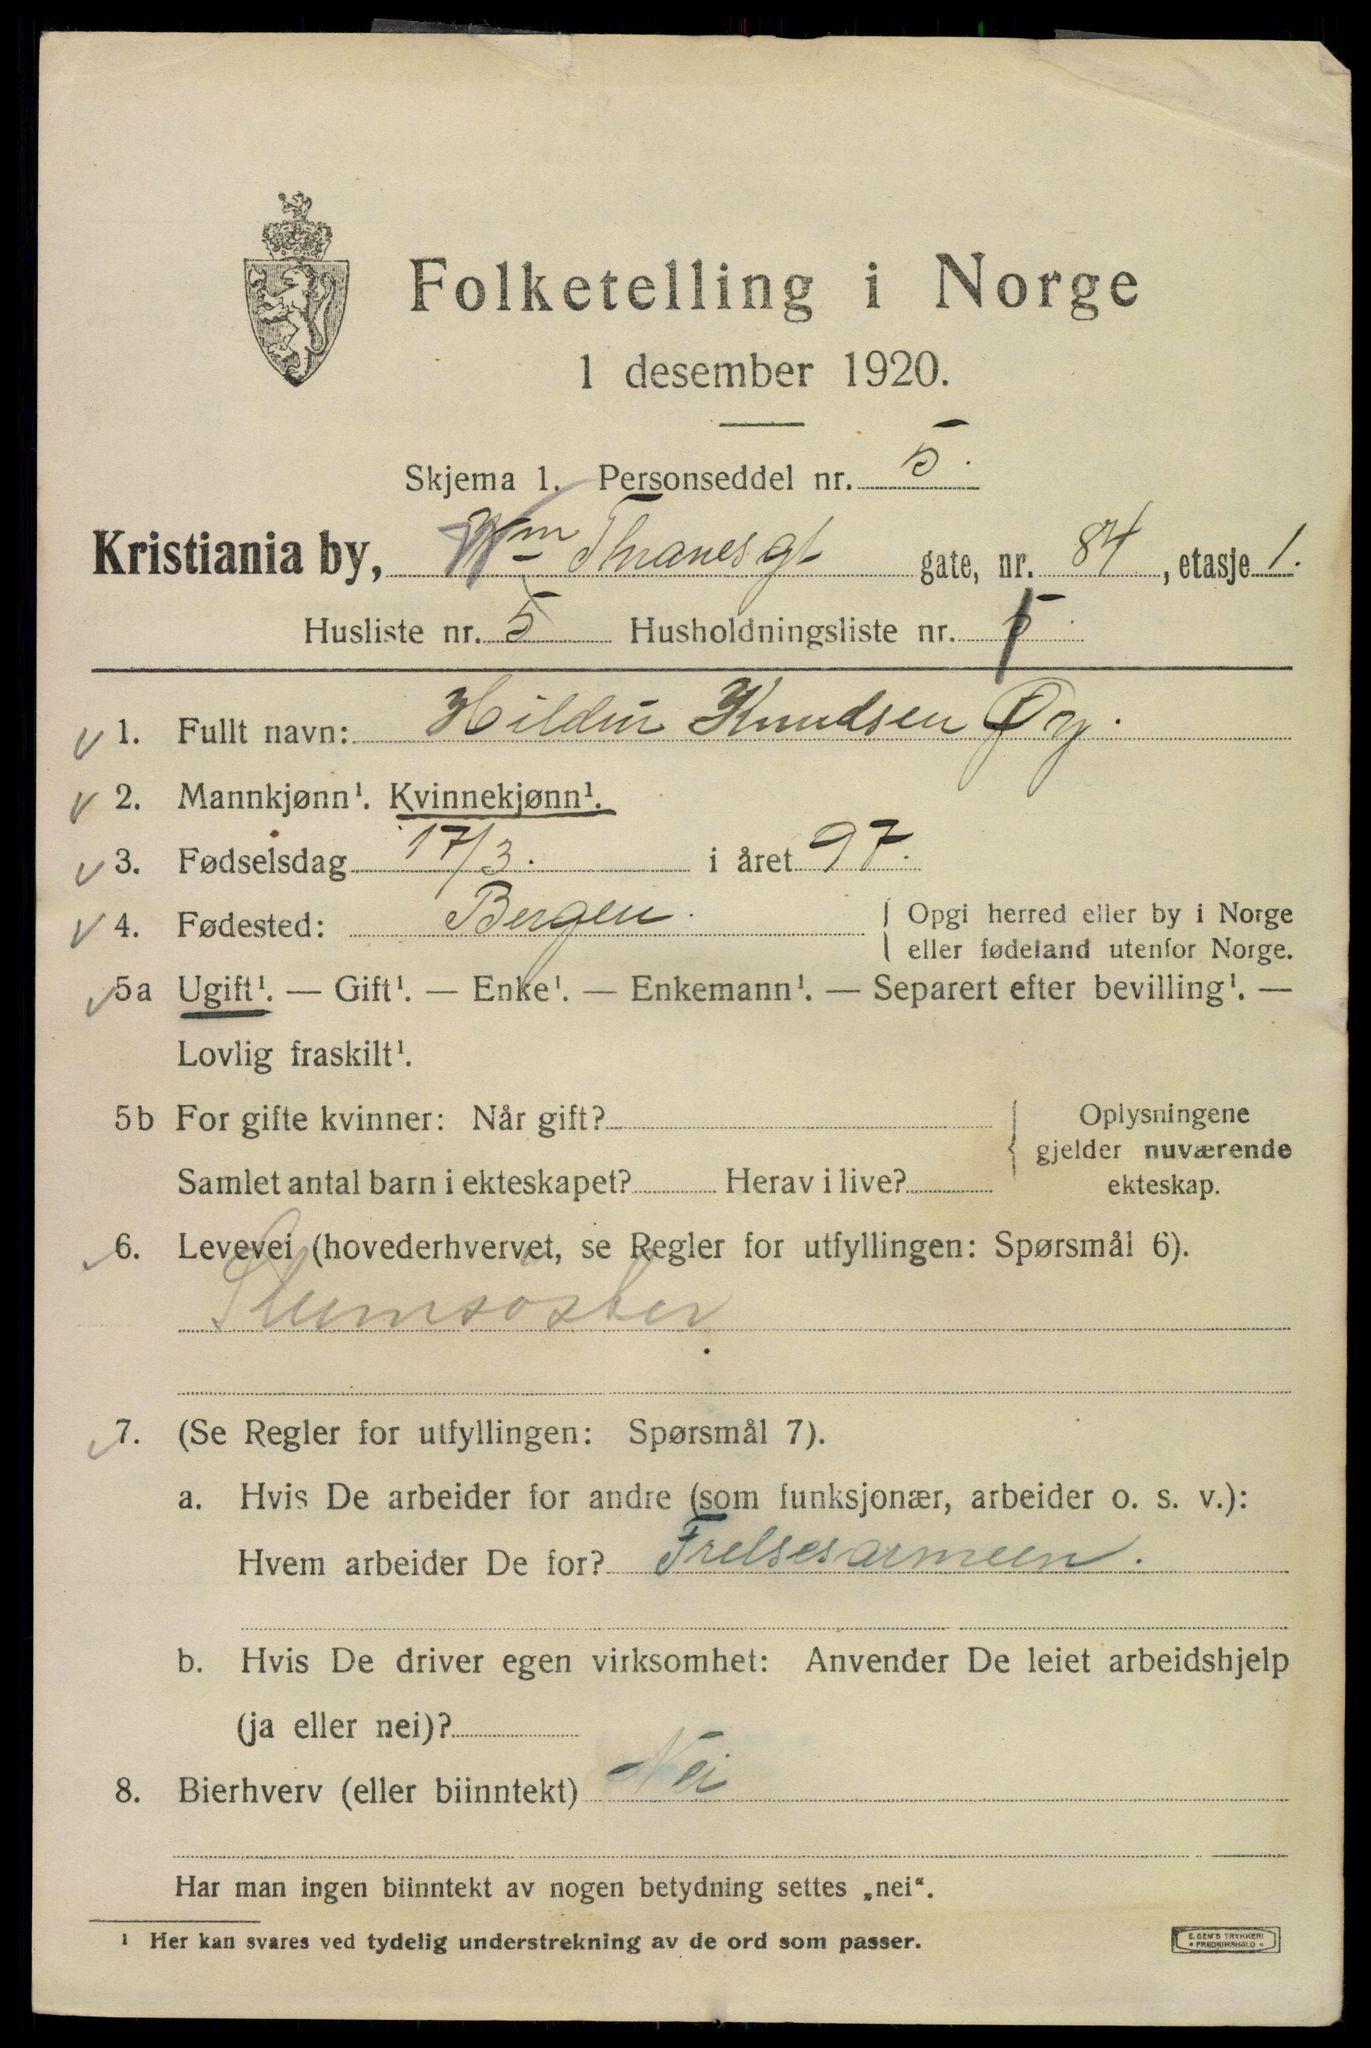 Folketelling i Norge
1 desember 1920.
Skjema 1. Personseddel nr. 5.
Kristiania by, Wm Thranesgt gate, nr. 84, etasje 1.
Husliste nr. 5 Husholdningsliste nr.
1. Fullt navn: Hildur Knudsen Øy.
2. Mannkjønn¹. Kvinnekjønn¹.
3. Fødselsdag 17/3. i året 97.
4. Fødested: Bergen. Opgi herred eller by i Norge
eller fødeland utenfor Norge.
5a Ugift¹. — Gift¹. — Enke¹. — Enkemann¹. — Separert efter bevilling¹. —
Lovlig fraskilt¹.
5b For gifte kvinner: Når gift? Oplysningene
gjelder nuværende
Samlet antal barn i ekteskapet? Herav i live? ekteskap.
6. Levevei (hovederhvervet, se Regler for utfyllingen: Spørsmål 6).
Slumsöster
7. (Se Regler for utfyllingen: Spørsmål 7).
a. Hvis De arbeider for andre (som funksjonær, arbeider o. s. v.):
Hvem arbeider De for? Frelsesarmeen.
b. Hvis De driver egen virksomhet: Anvender De leiet arbeidshjelp
(ja eller nei)?
8. Bierhverv (eller biinntekt) Nei
Har man ingen biinntekt av nogen betydning settes „nei“.
¹ Her kan svares ved tydelig understrekning av de ord som passer.
E. SEM'S TRYKKERI
• FREDRIKSHALD •